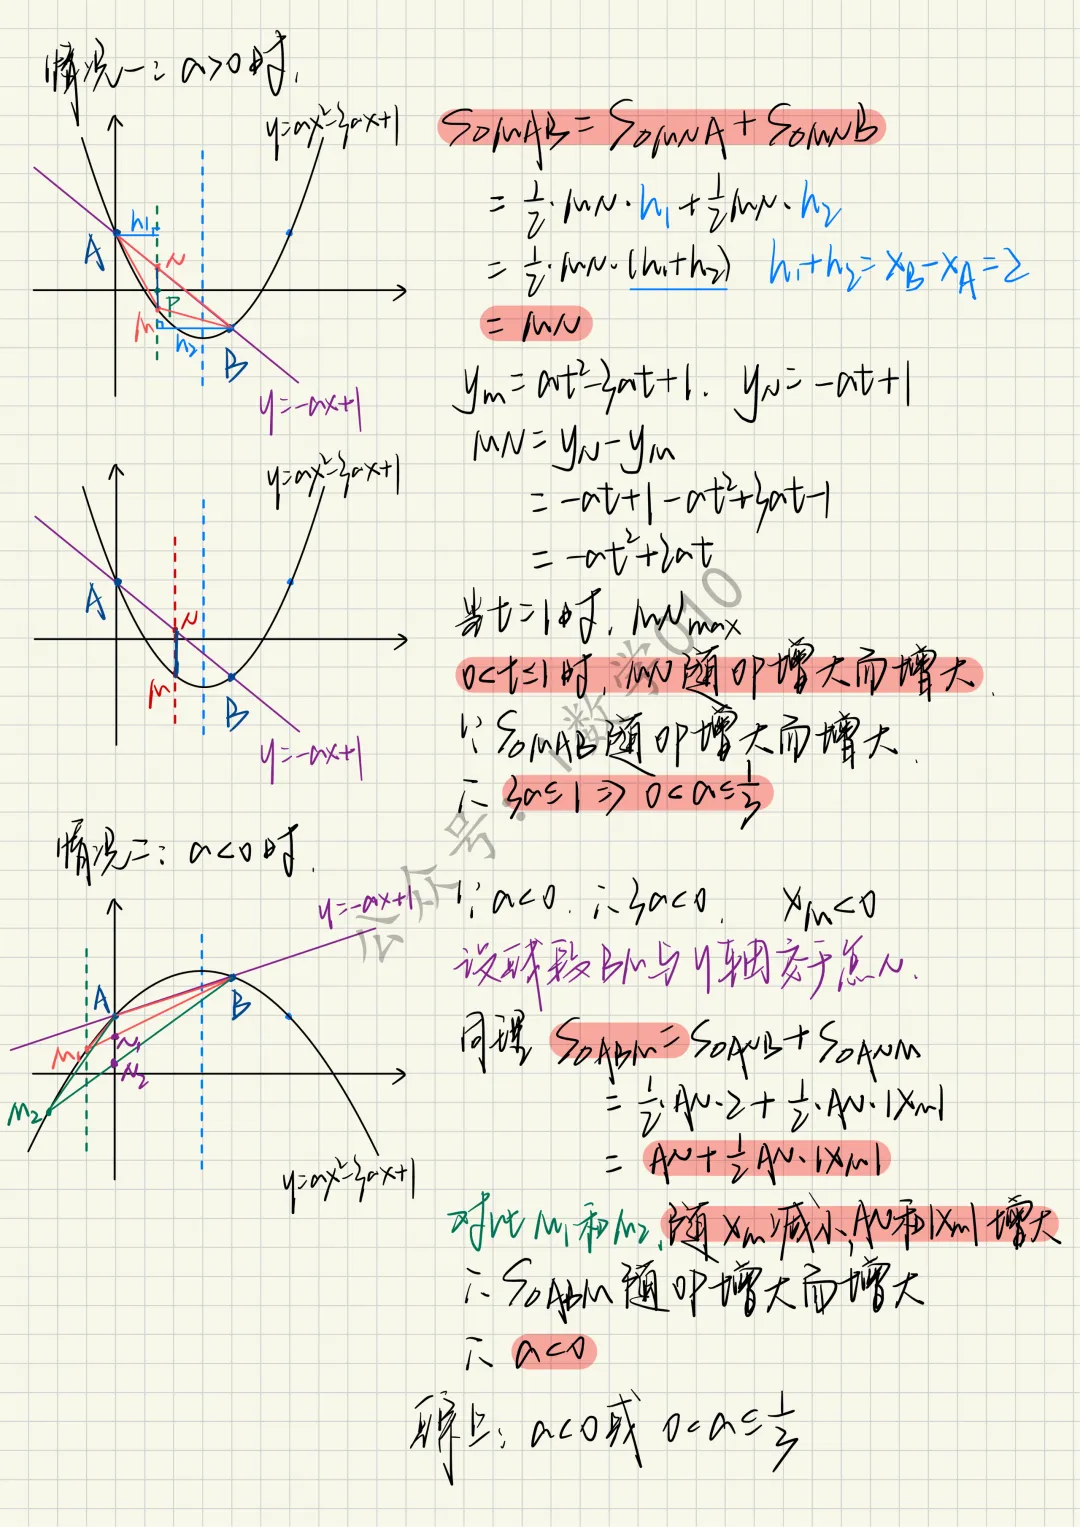 情况一：a>0时.
y=ax²-3ax+1
h₁
A
N
P
M
h₂
B
y=-ax+1
S△MAB=S△MNA+S△MNB
=½·MN·h₁+½MN·h₂
=½·MN·(h₁+h₂) h₁+h₂=x_B-x_A=2
=MN
y_M=at²-3at+1. y_N=-at+1
MN=y_N-y_M
=-at+1-at²+3at-1
=-at²+2at
当t=1时, MNmax
0<t≤1时, MN随OP增大而增大.
∵S△MAB随OP增大而增大.
∴3a≤1⇒0<a≤⅓
y=ax²-3ax+1
A
N
M
B
y=-ax+1
情况二：a<0时.
y=-ax+1
A
B
M₁
N₁
N₂
M₂
y=ax²-3ax+1
∵a<0.∴3a<0. x_M<0
设线段BM与y轴交于点N.
同理 S△ABM=S△ANB+S△ANM
=½·AN·2+½·AN·|x_M|
=AN+½AN·|x_M|
对比M₁和M₂,随x_M减小,AN和|x_M|增大
∴S△ABM随OP增大而增大
∴a<0
综上：a<0或0<a≤⅓
公众号·数学010